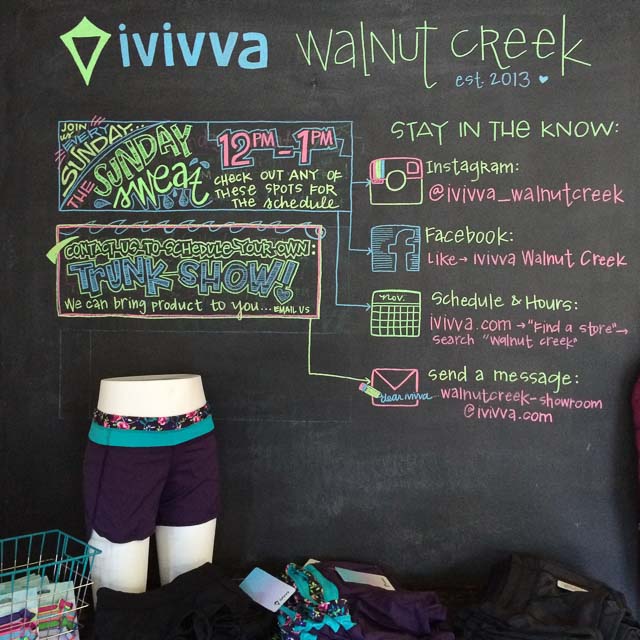 ivivva walnut creek
est. 2013
JOIN us EVERY SUNDAY...
THE SUNDAY sweat
12PM - 1PM
CHECK OUT ANY OF
THESE SPOTS FOR
THE SCHEDULE
CONTACT US TO SCHEDULE YOUR OWN:
TRUNK SHOW!
We can bring product to you... EMAIL US
STAY IN THE KNOW:
Instagram:
@ivivva_walnutcreek
Facebook:
Like→ ivivva Walnut Creek
NOV.
Schedule & Hours:
ivivva.com →"Find a store"→
search "walnut creek"
send a message:
dear ivivva
walnutcreek-showroom
@ivivva.com